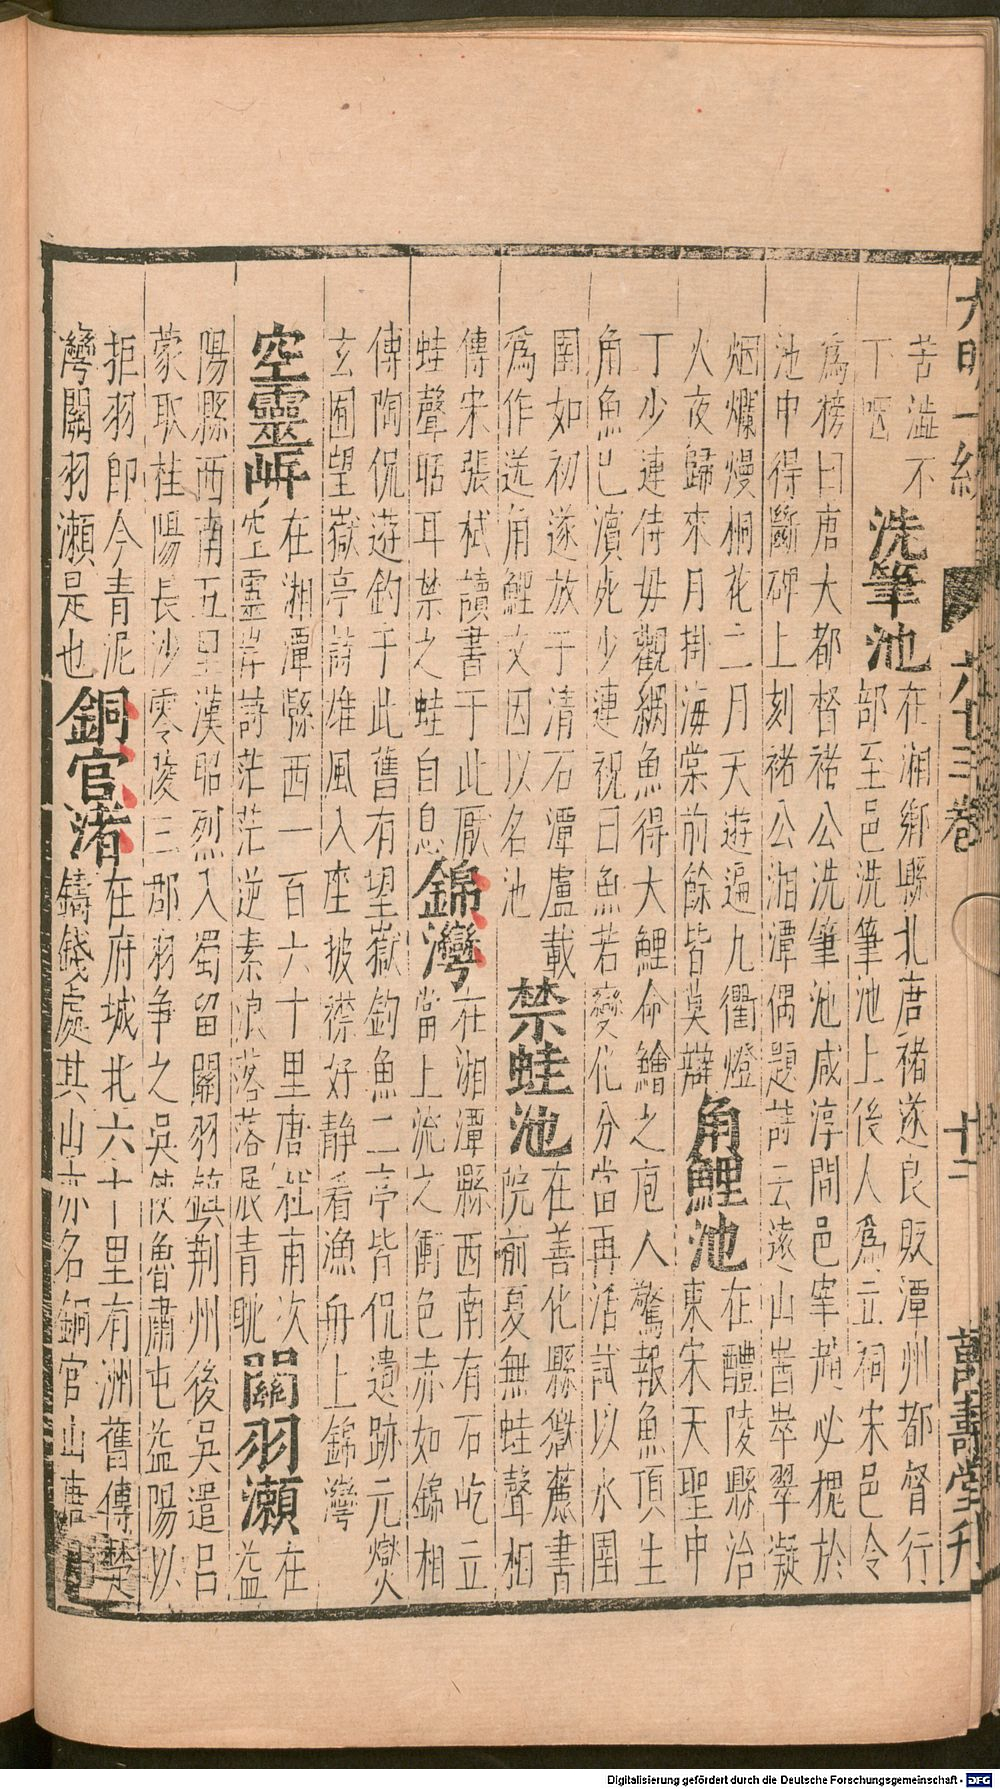 大明一統志 六十三卷 廿二 萬壽堂刊
苦澁不
下咽
洗筆池
在湘鄉縣北唐褚遂良貶潭州都督行
部至邑洗筆池上後人爲立祠宋邑令
爲榜曰唐大都督褚公洗筆池咸淳間邑宰趙必槐於
池中得斷碑上刻褚公湘潭偶題詩云遠山崷崒翠凝
烟爛熳桐花二月天遊遍九衢燈
火夜歸來月掛海棠前餘皆莫辯
角鯉池
在醴陵縣治
東宋天聖中
丁少連侍母觀網魚得大鯉命鱠之庖人驚報魚頂生
角魚已濵死少連祝曰魚若變化分當再活試以水圉
圉如初遂放于清石潭盧載
爲作送角鯉文因以名池
禁蛙池
在善化縣嶽麓書
院前夏無蛙聲相
傳宋張栻讀書于此厭
蛙聲聒耳禁之蛙自息
錦灣
在湘潭縣西南有石屹立
當上流之衝色赤如錦相
傳陶侃遊釣于此舊有望嶽釣魚二亭皆侃遺跡元爕
玄圃望嶽亭詩雄風入座披襟好靜看漁舟上錦灣
空靈岸
在湘潭縣西一百六十里唐杜甫次
空靈岸詩茫茫逆素浪落落展青眺
關羽瀨
在
益
陽縣西南五里漢昭烈入蜀留關羽鎮荆州後吳遣呂
蒙取桂陽長沙零陵三郡羽争之吳使魯肅屯益陽以
拒羽即今青泥
灣關羽瀬是也
銅官渚
在府城北六十里有洲舊傳楚
鑄錢處其山亦名銅官山唐
Digitalisierung gefördert durch die Deutsche Forschungsgemeinschaft - DFG